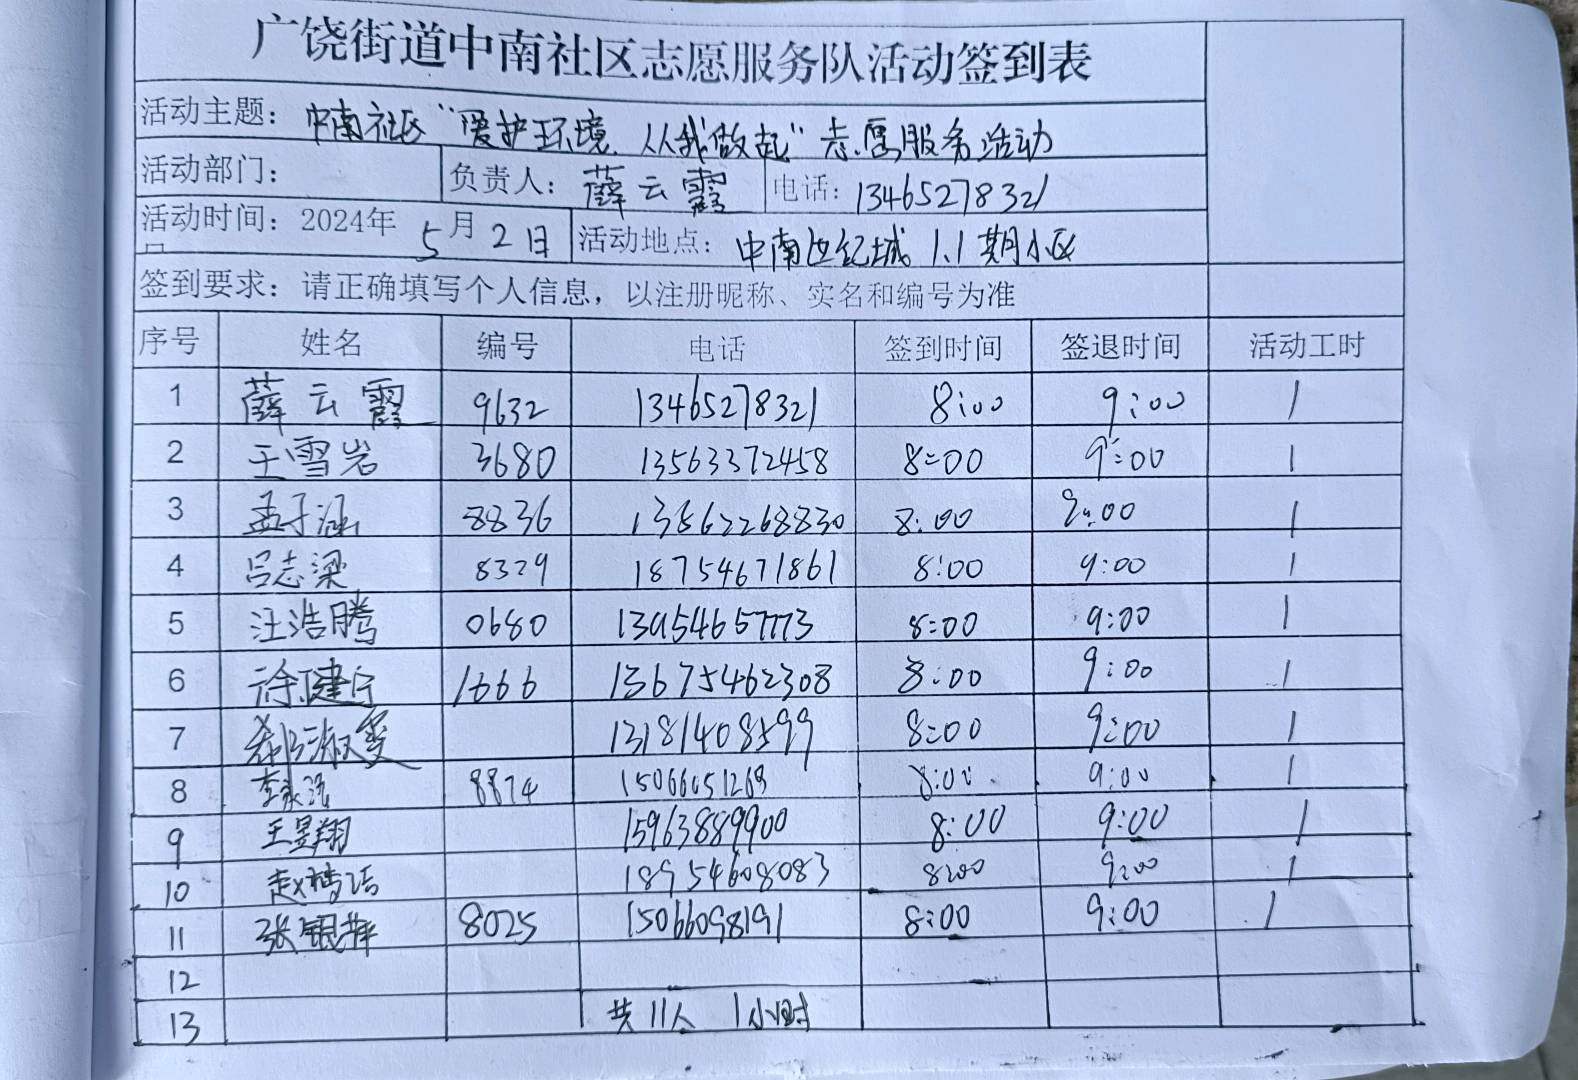 广饶街道中南社区志愿服务队活动签到表
活动主题：中南社区"爱护环境.从我做起"志愿服务活动
活动部门： 负责人：薛云霞 电话：13465278321
活动时间：2024年5月2日 活动地点：中南世纪城1.1期小区
签到要求：请正确填写个人信息，以注册昵称、实名和编号为准
序号 姓名 编号 电话 签到时间 签退时间 活动工时
1 薛云霞 9632 13465278321 8:00 9:00 1
2 王雪岩 3680 13563372458 8:00 9:00 1
3 孟子涵 8836 13562268830 8:00 9:00 1
4 吕志梁 8329 18754671861 8:00 9:00 1
5 汪浩腾 0680 13954657773 8:00 9:00 1
6 徐健宁 1666 13675462308 8:00 9:00 1
7 13181408599 8:00 9:00 1
8 8874 15066051269 8:00 9:00 1
9 王昱翔 15963889900 8:00 9:00 1
10 18954608083 8:00 9:00 1
11 张银萍 8025 15066098191 8:00 9:00 1
12
13 共11人 1小时